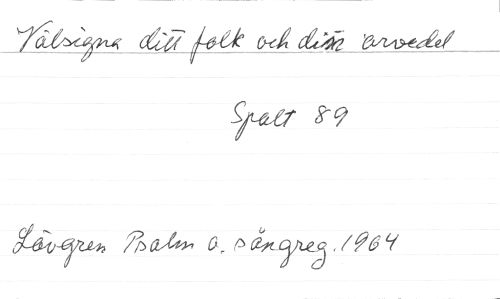 Välsigna ditt folk och din arvedel
Spalt 89
Lövgren Psalm o. sångreg. 1964